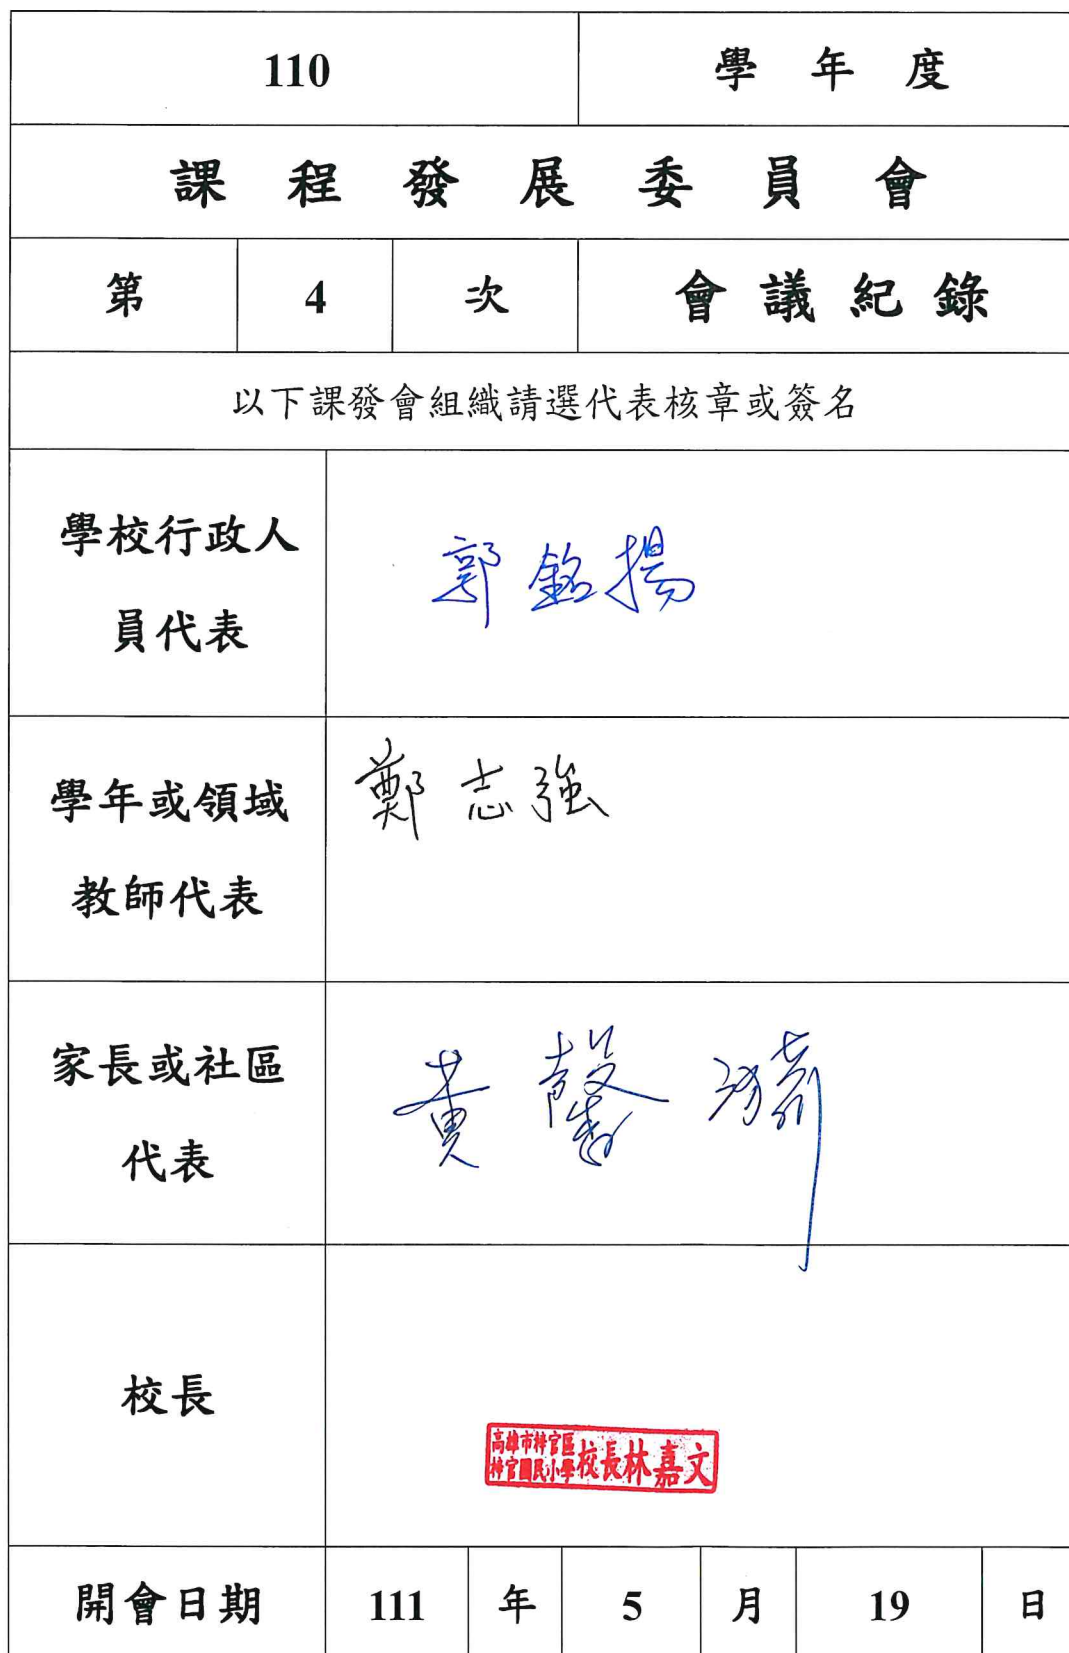 110 學年度
課程發展委員會
第 4 次 會議紀錄
以下課發會組織請選代表核章或簽名
學校行政人
員代表
郭銘揚
學年或領域
教師代表
鄭志強
家長或社區
代表
黃馨
校長
高雄市梓官區
梓官國民小學
校長林嘉文
開會日期 111 年 5 月 19 日